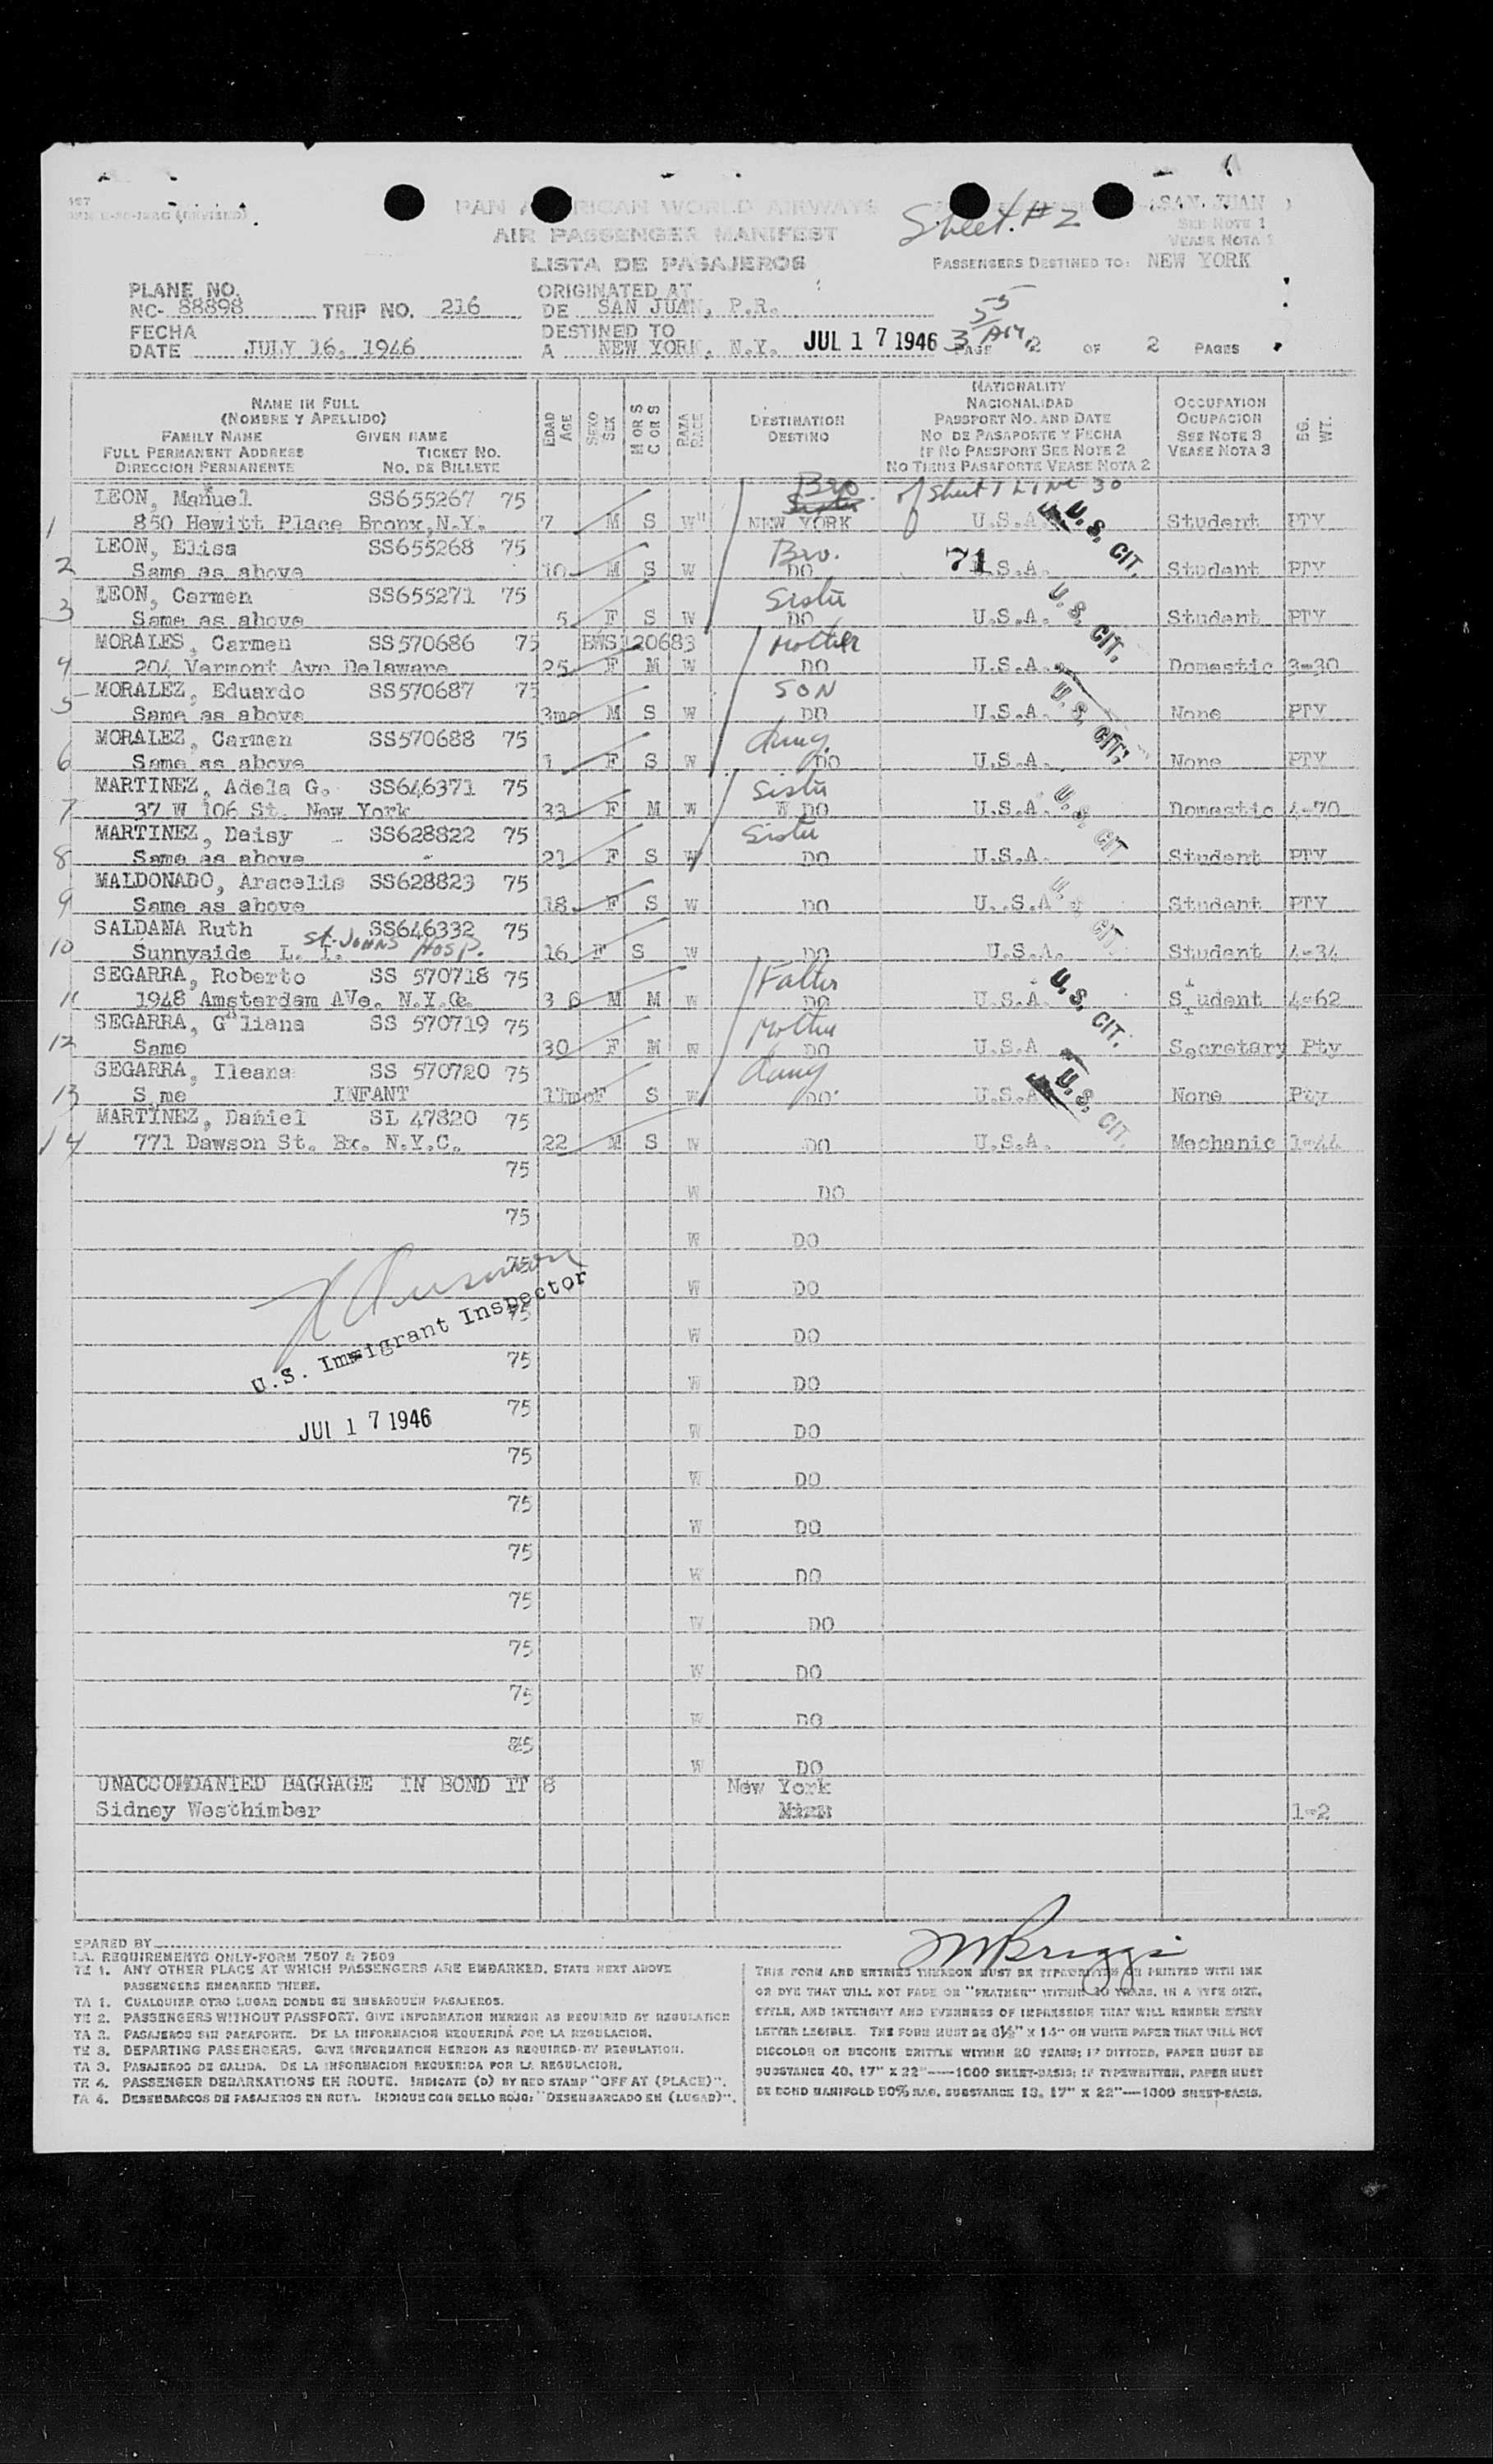 PAN AMERICAN WORLD AIRWAYS
(SAN JUAN)
Sheet #2
SEE NOTE 1
AIR PASSENGER MANIFEST
VEASE NOTA 1
LISTA DE PASAJEROS
PASSENGERS DESTINED TO: NEW YORK
PLANE NO. ORIGINATED AT
NC- 88898 TRIP NO. 216 DE SAN JUAN, P.R.
FECHA DESTINED TO
DATE JULY 16, 1946 A NEW YORK, N.Y. JUL 17 1946 3 55 AM PAGE 2 OF 2 PAGES
NAME IN FULL
(NOMBRE Y APELLIDO)
FAMILY NAME GIVEN NAME
FULL PERMANENT ADDRESS TICKET NO.
DIRECCION PERMANENTE NO. DE BILLETE
EDAD AGE
SEXO SEX
M OR S C OR S
RAZA RACE
DESTINATION
DESTINO
NATIONALITY
NACIONALIDAD
PASSPORT NO. AND DATE
NO DE PASAPORTE Y FECHA
IF NO PASSPORT SEE NOTE 2
NO TIENE PASAPORTE VEASE NOTA 2
OCCUPATION
OCUPACION
SEE NOTE 3
VEASE NOTA 3
BG. WT.
LEON, Manuel SS655267 75 Bro. of Sheet 1 LINE 30
1 850 Hewitt Place Bronx, N.Y. 7 M S W NEW YORK U.S.A. U.S. CIT. Student PTY
LEON, Elisa SS655268 75 Bro.
2 Same as above 10 M S W DO 71 U.S.A. Student PTY
LEON, Carmen SS655271 75 Sister
3 Same as above 5 F S W DO U.S.A. U.S. CIT. Student PTY
MORALES, Carmen SS570686 75 BWS120683 Mother
4 204 Vermont Ave Delaware 25 F M W DO U.S.A. Domestic 3-30
MORALEZ, Eduardo SS570687 75 SON
5 Same as above 3mo M S W DO U.S.A. U.S. CIT. None PTY
MORALEZ, Carmen SS570688 75 daug.
6 Same as above 1 F S W DO U.S.A. None PTY
MARTINEZ, Adela G. SS646371 75 Sister
7 37 W 106 St. New York 33 F M W W DO U.S.A. U.S. CIT Domestic 4-70
MARTINEZ, Daisy SS628822 75 Sister
8 Same as above 21 F S W DO U.S.A. Student PTY
MALDONADO, Aracelis SS628823 75
9 Same as above 18 F S W DO U..S.A U.S. CIT Student PTY
SALDANA Ruth SS646332 75
10 Sunnyside L. I. St. JOHNS HOSP. 16 F S W DO U.S.A. Student 4-34
SEGARRA, Roberto SS 570718 75 Father
11 1948 Amsterdam AVe. N.Y.C. 36 M M W DO U.S.A U.S. CIT. Student 4-62
SEGARRA, G liana SS 570719 75 Mother
12 Same 30 F M W DO U.S.A Secretary Pty
SEGARRA, Ileana SS 570720 75 daug
13 S me INFANT 11mo F S W DO U.S.A U.S. CIT. None Pty
MARTINEZ, Daniel SL 47820 75
14 771 Dawson St. Bx. N.Y.C. 22 M S W DO U.S.A. Mechanic 1-44
75
W DO
75
W DO
75
W DO
75
W DO
75
W DO
75
W DO
75
W DO
75
W DO
75
W DO
75
W DO
75
W DO
75
W DO
75
W DO
U.S. Immigrant Inspector
JUL 17 1946
UNACCOMPANIED BAGGAGE IN BOND IT 8 New York
Sidney Westhimber 1-2
MBriggs
EPARED BY
I.A. REQUIREMENTS ONLY-FORM 7507 & 7509
TE 1. ANY OTHER PLACE AT WHICH PASSENGERS ARE EMBARKED, STATE NEXT ABOVE
PASSENGERS EMBARKED THERE.
TA 1. CUALQUIER OTRO LUGAR DONDE SE EMBARQUEN PASAJEROS.
TE 2. PASSENGERS WITHOUT PASSPORT. GIVE INFORMATION HEREON AS REQUIRED BY REGULATION
TA 2. PASAJEROS SIN PASAPORTE. DE LA INFORMACION REQUERIDA POR LA REGULACION.
TE 3. DEPARTING PASSENGERS. GIVE INFORMATION HEREON AS REQUIRED BY REGULATION.
TA 3. PASAJEROS DE SALIDA. DE LA INFORMACION REQUERIDA POR LA REGULACION.
TE 4. PASSENGER DEBARKATIONS EN ROUTE. INDICATE (D) BY RED STAMP "OFF AT (PLACE)".
TA 4. DESEMBARCOS DE PASAJEROS EN RUTA. INDIQUE CON SELLO ROJO: "DESEMBARCADO EN (LUGAR)".
THIS FORM AND ENTRIES THEREON MUST BE TYPEWRITTEN OR PRINTED WITH INK
OR DYE THAT WILL NOT FADE OR "FEATHER" WITHIN 20 YEARS, IN A TYPE SIZE,
STYLE, AND INTENSITY AND EVENNESS OF IMPRESSION THAT WILL RENDER EVERY
LETTER LEGIBLE. THE FORM MUST BE 8½" X 14" ON WHITE PAPER THAT WILL NOT
DISCOLOR OR BECOME BRITTLE WITHIN 20 YEARS; IF DITTOED, PAPER MUST BE
SUBSTANCE 40, 17" X 22"—1000 SHEET-BASIS; IF TYPEWRITTEN, PAPER MUST
BE BOND MANIFOLD 50% RAG, SUBSTANCE 13, 17" X 22"—1000 SHEET-BASIS.